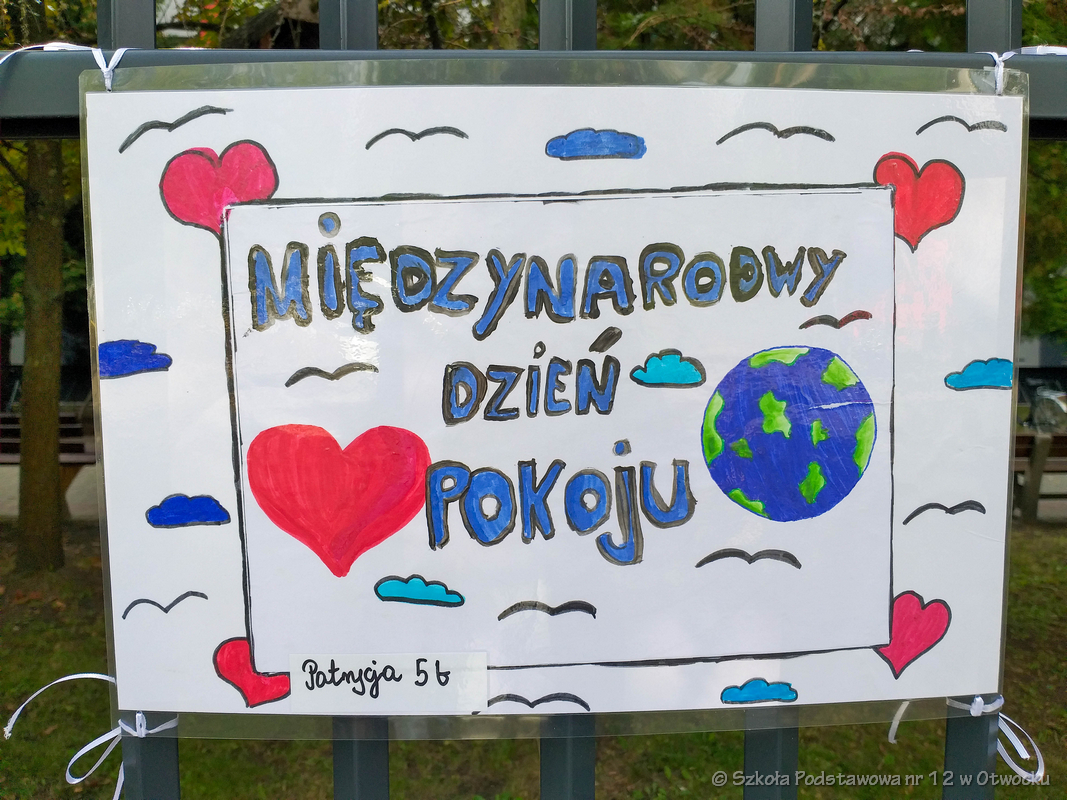 MiĘDZYNARODWY
DZiEŃ
POKOjU
Patrycja 5b
© Szkoła Podstawowa nr 12 w Otwocku